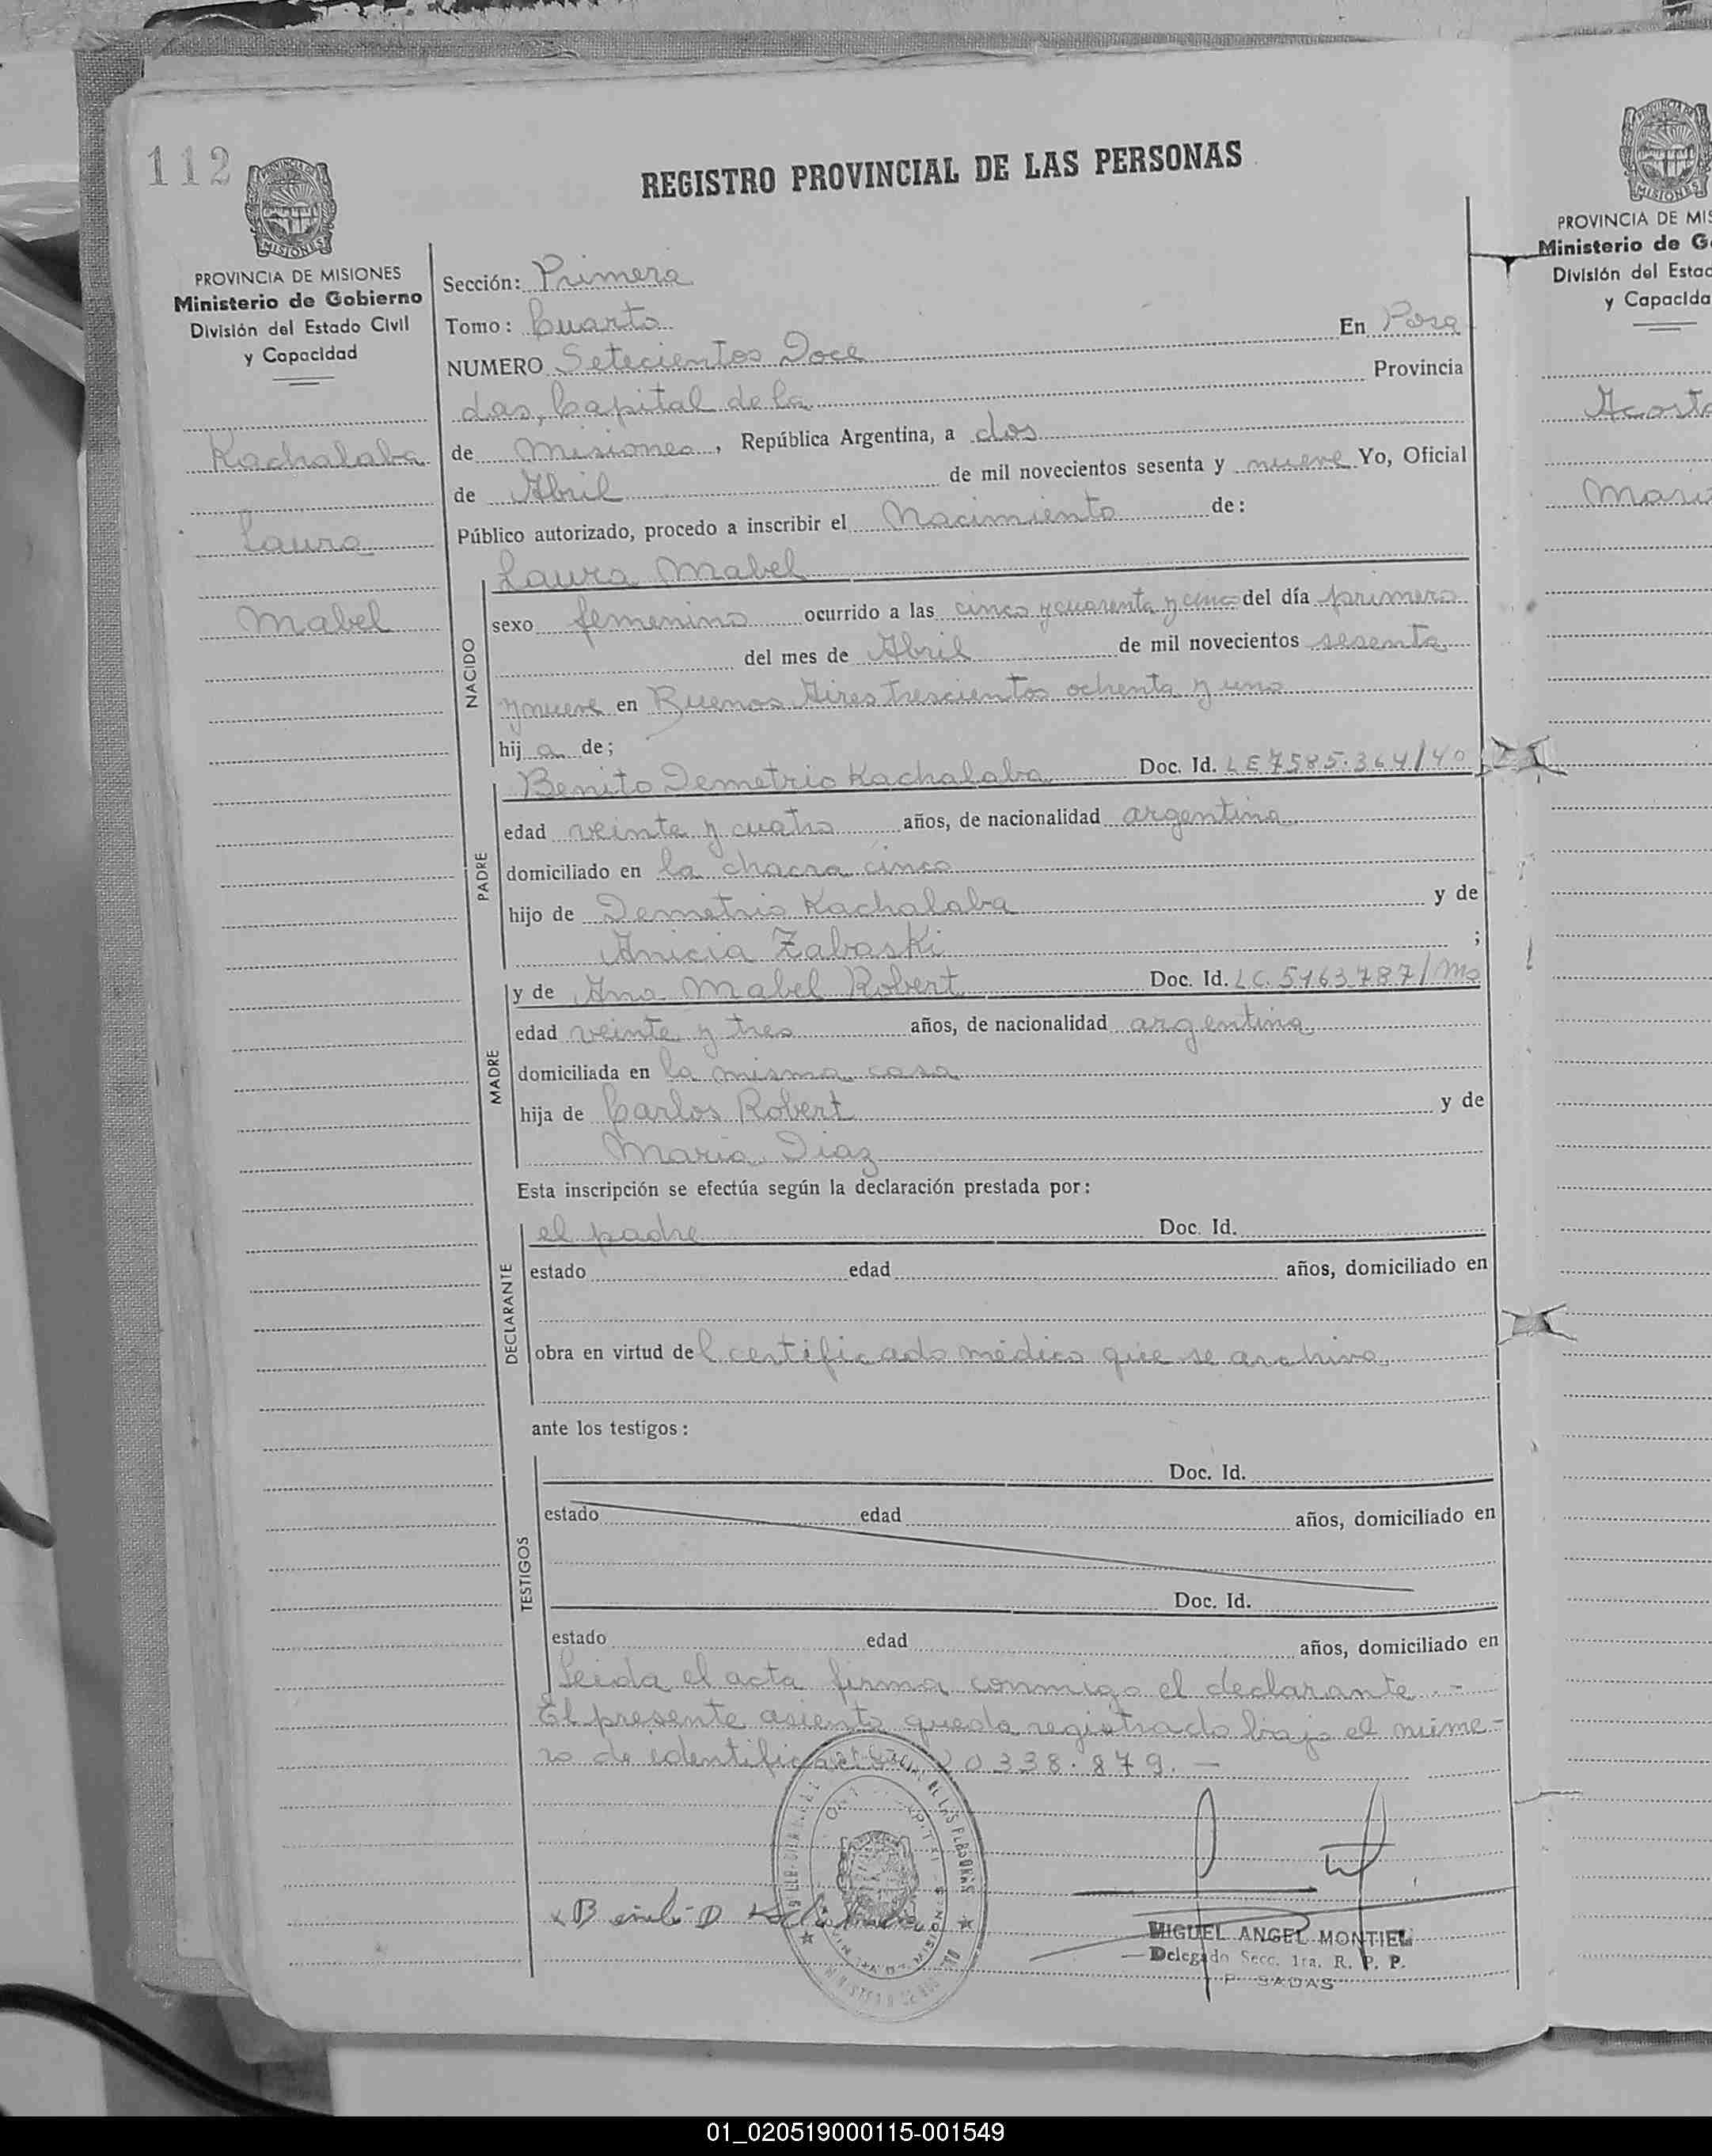 112
REGISTRO PROVINCIAL DE LAS PERSONAS
PROVINCIA DE MISIONES
Ministerio de Gobierno
División del Estado Civil
y Capacidad
Kachalaba
Laura
Mabel
Sección: Primera
Tomo: Cuarto En Posa
NUMERO Setecientos Doce
das, Capital de la Provincia
de Misiones, República Argentina, a dos
de Abril de mil novecientos sesenta y nueve Yo, Oficial
Público autorizado, procedo a inscribir el Nacimiento de:
NACIDO
Laura Mabel
sexo femenino ocurrido a las cinco y cuarenta y cinco del día primero
del mes de Abril de mil novecientos sesenta
y nueve en Buenos Aires trescientos ochenta y uno
hij a de;
PADRE
Benito Demetrio Kachalaba Doc. Id. LE 7585.364/40
edad veinte y cuatro años, de nacionalidad argentina
domiciliado en la chacra cinco
hijo de Demetrio Kachalaba y de
Anicia Zabaski ;
MADRE
y de Ana Mabel Robert Doc. Id. LC. 5163787/Ms
edad veinte y tres años, de nacionalidad argentina
domiciliada en la misma casa
hija de Carlos Robert y de
Maria Diaz
Esta inscripción se efectúa según la declaración prestada por:
DECLARANTE
el padre Doc. Id.
estado edad años, domiciliado en
obra en virtud del certificado médico que se archiva
ante los testigos:
TESTIGOS
Doc. Id.
estado edad años, domiciliado en
Doc. Id.
estado edad años, domiciliado en
Leida el acta firma conmigo el declarante.-
El presente asiento queda registrado bajo el núme-
ro de identificación 20338.879.-
Benito D
MIGUEL ANGEL MONTIEL
Delegado Secc. 1ra. R. P. P.
P SADAS
MISIONES
PROVINCIA DE MIS
Ministerio de G
División del Estad
y Capacida
Acosta
01_020519000115-001549